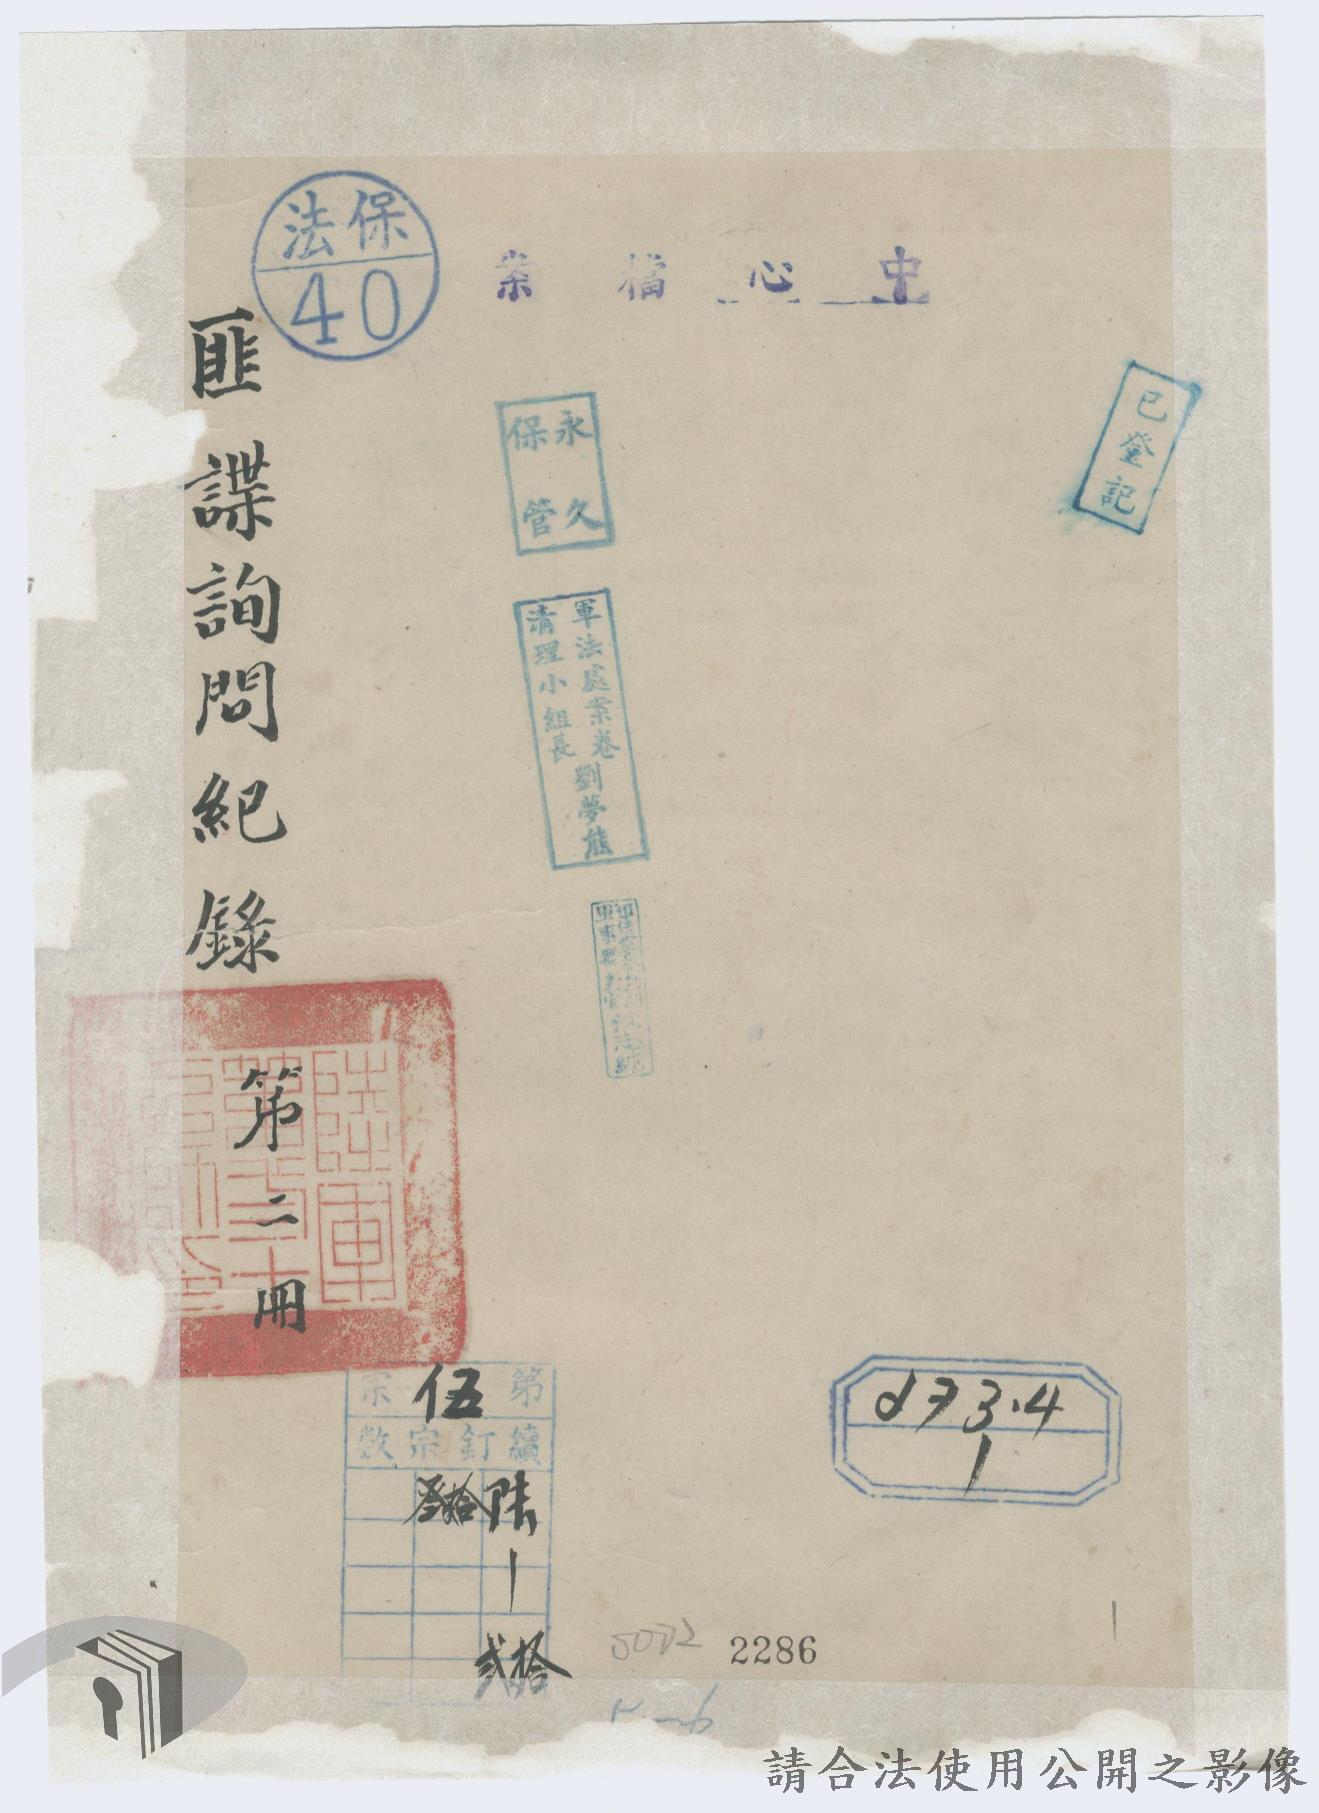 保法
40
中心檔案
已登記
永久
保管
軍法處案卷
清理小組長
劉夢熊
匪諜詢問紀錄 第二冊
第伍宗
續訂宗數
陸
叁拾
拾
貳
d73.4
1
2286
請合法使用公開之影像